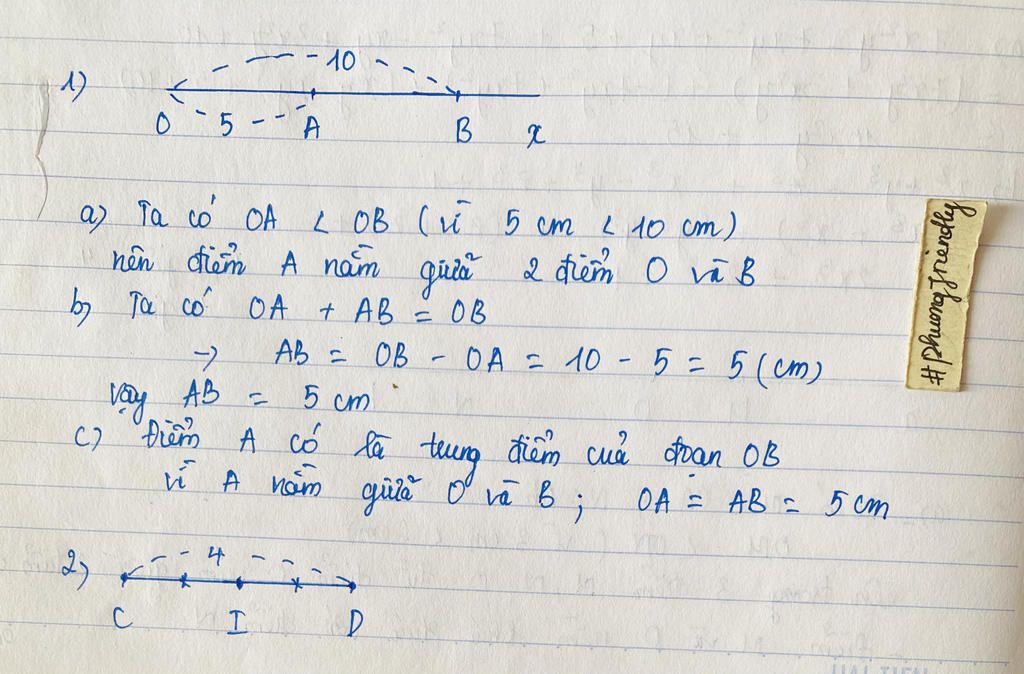 1)
10
O 5 A B x
a) Ta có OA < OB (vì 5 cm < 10 cm)
nên điểm A nằm giữa 2 điểm O và B
b) Ta có OA + AB = OB
→ AB = OB - OA = 10 - 5 = 5 (cm)
vậy AB = 5 cm
c) Điểm A có là trung điểm của đoạn OB
vì A nằm giữa O và B ; OA = AB = 5 cm
2) 4
C I D
#/phuongfriendly